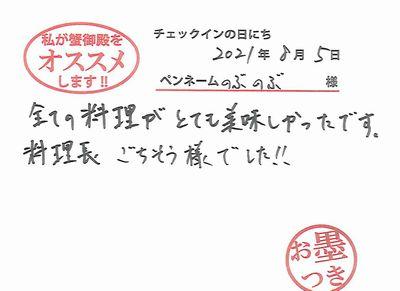 私が蟹御殿を
オススメ
します!!
チェックインの日にち
2021年 8月 5日
ペンネーム のぶのぶ 様
全ての料理が とても美味しかったです。
料理長 ごちそう様でした!!
お墨
つき